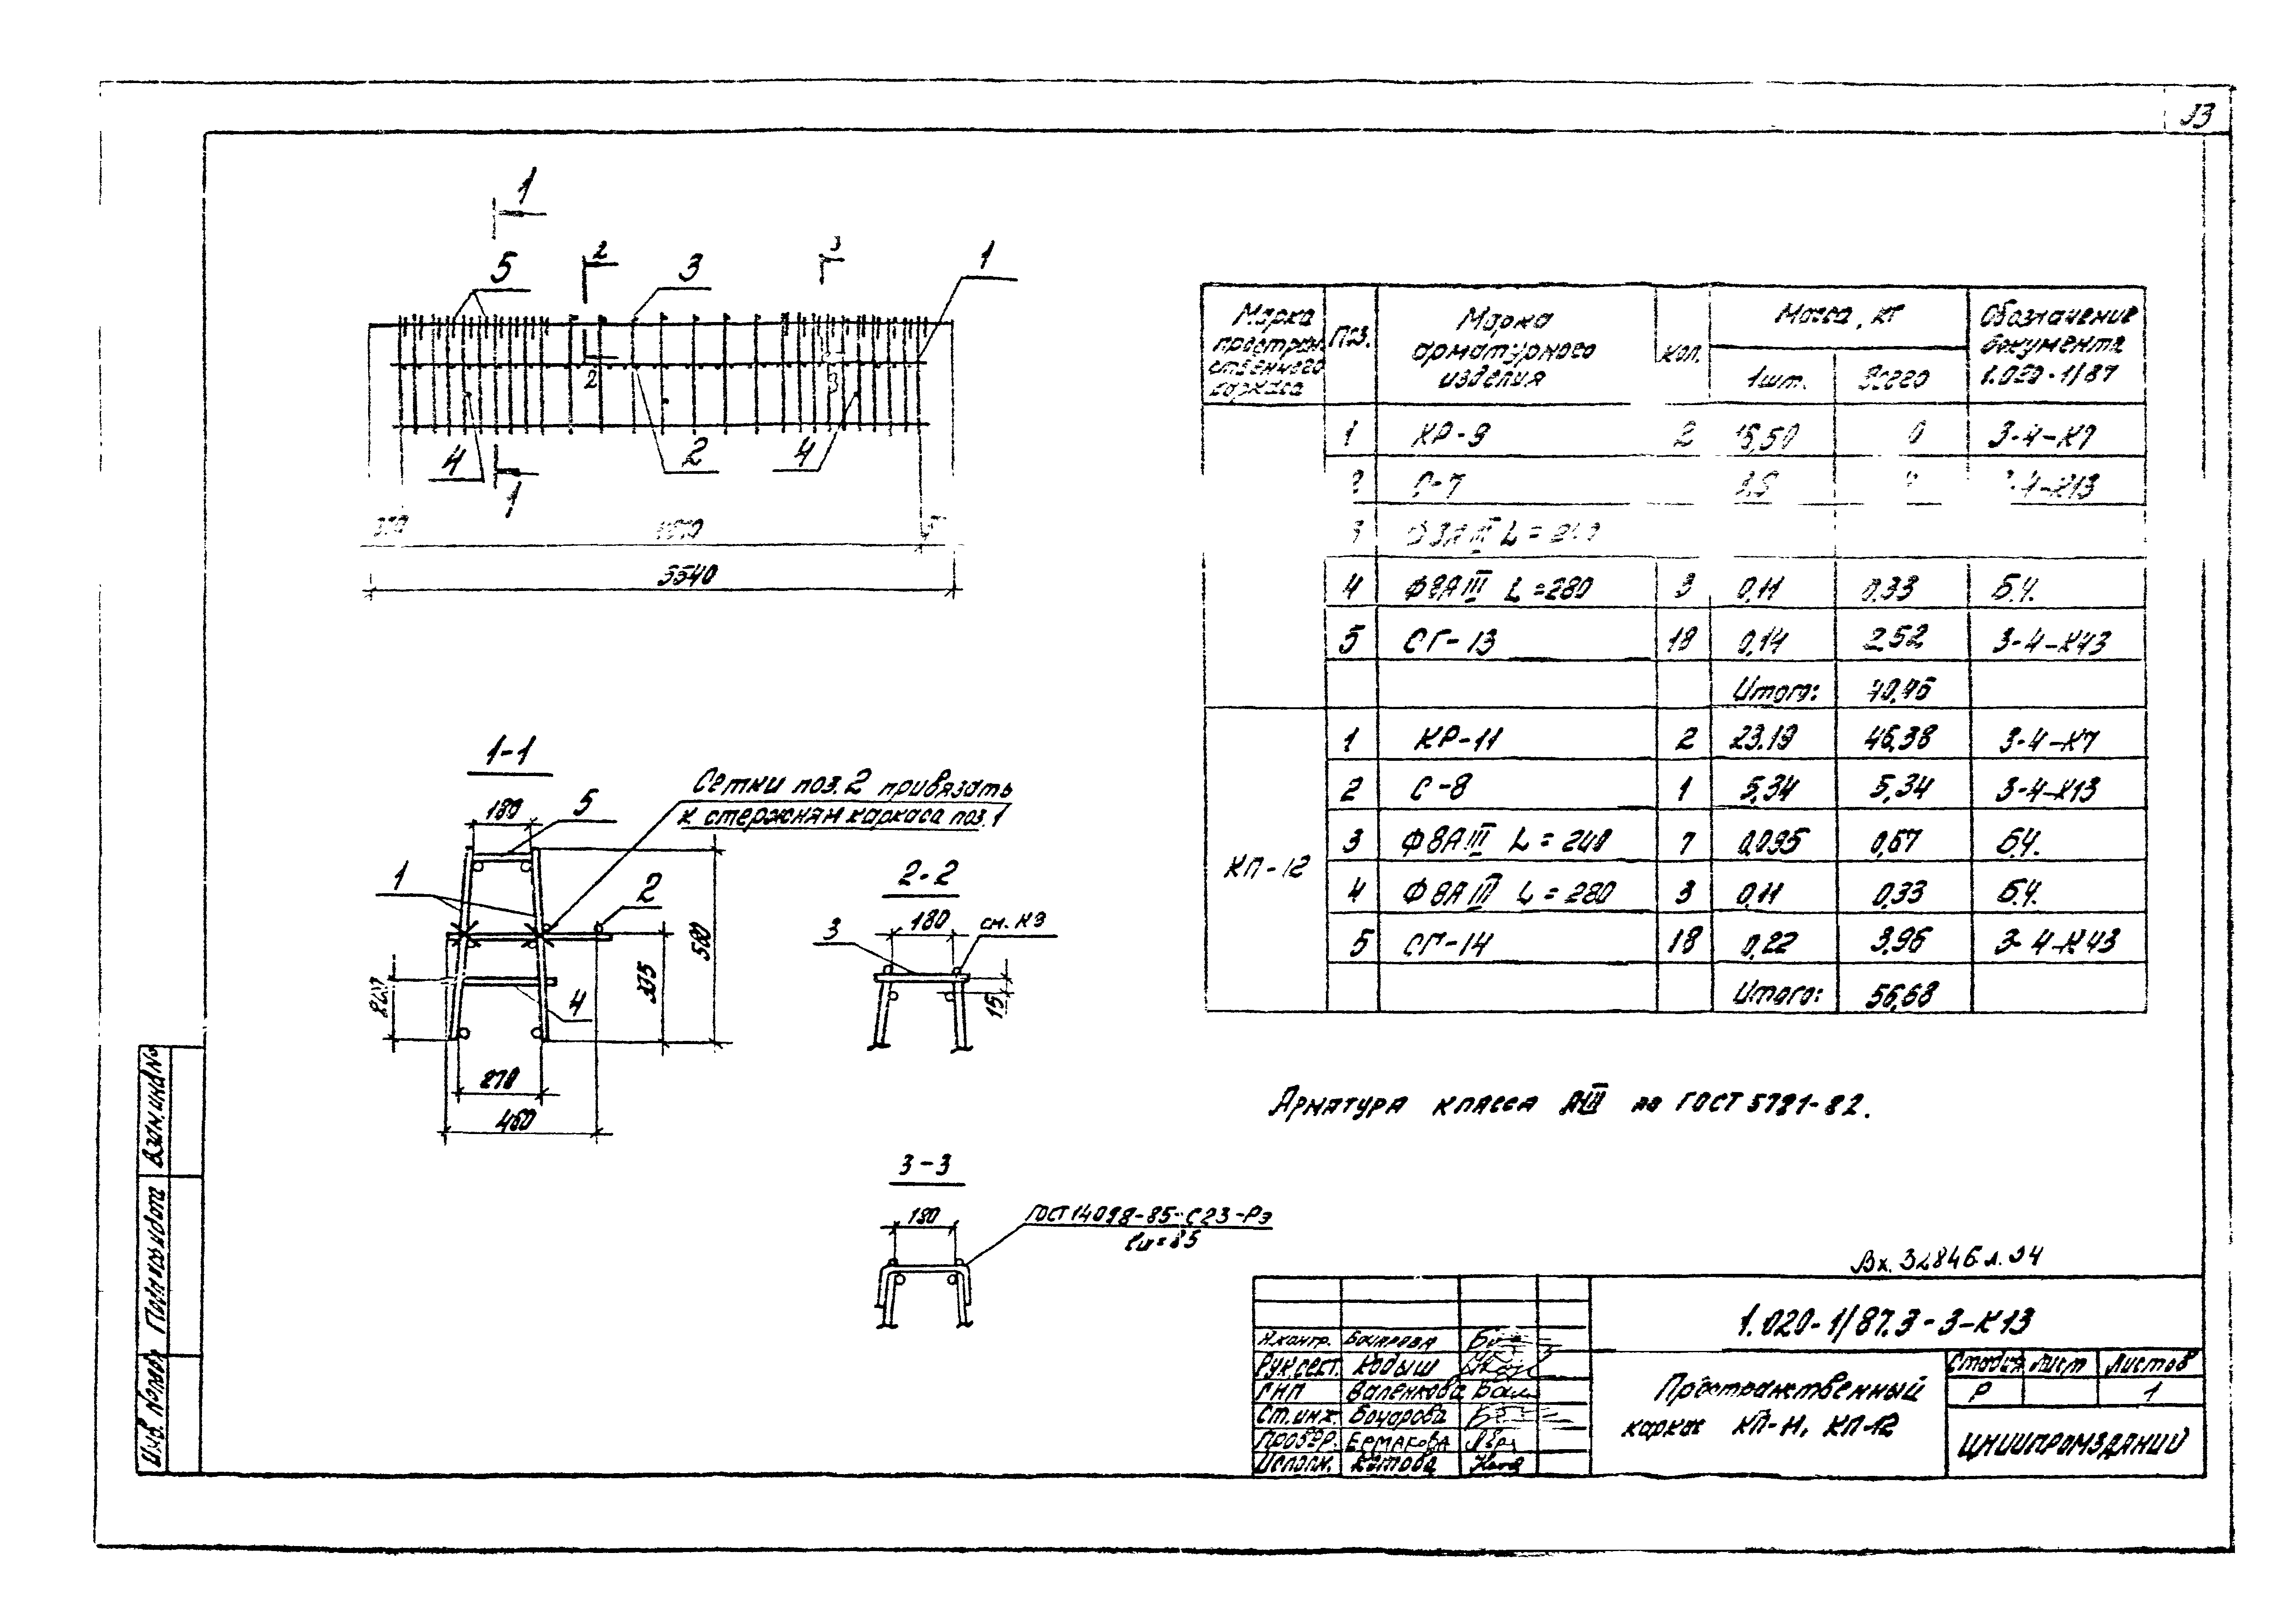 33
1
2
3
5
3
1
2
3
4
2
4
1
5540
1-1
180
5
Сетки поз. 2 привязать
к стержням каркаса поз. 1
1
2
4
500
335
270
460
2-2
180
см. КЭ
3
15
3-3
180
ГОСТ 14098-85-С23-Рэ
ℓш=85
Марка пространственного каркаса
Поз.
Марка арматурного изделия
Кол.
Масса, кг
1шт.
Всего
Обозначение документа 1.020-1/87
1 КР-9 2 3-4-К7
С-7
4 Ф8АIII L=280 3 0,11 0,33 Б.Ч.
5 СГ-13 18 0,14 2,52 3-4-К43
Итого: 40,46
КП-12
1 КР-11 2 23.19 46,38 3-4-К7
2 С-8 1 5,34 5,34 3-4-К13
3 Ф8АIII L=240 7 0,095 0,67 Б.Ч.
4 Ф8АIII L=280 3 0,11 0,33 Б.Ч.
5 СГ-14 18 0,22 3,96 3-4-К43
Итого: 56,68
Арматура класса АIII по ГОСТ 5781-82.
Вх. 32846 л. 34
1.020-1/87.3-3-К13
Н.контр. Бочарова
Рук.сект. Кодыш
ГИП Валенкова
Ст.инж. Бочарова
Провер. Ермакова
Исполн. Котова
Пространственный
каркас КП-11, КП-12
Стадия Лист Листов
Р 1
ЦНИИПРОМЗДАНИЙ
Взам.инв.№
Подпись и дата
Инв. № подл.